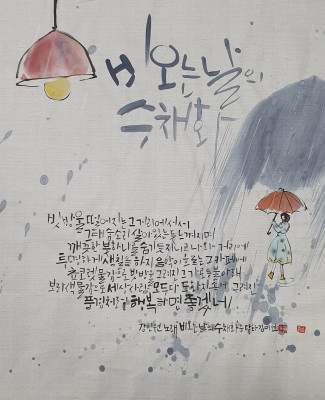 비오는날의
수채화
빗방울 떨어지는 그 거리에 서서
그대 숨소리 살아있는듯 느껴지면
깨끗한 붓 하나를 숨기듯 지니고 나와 거리에
투명하게 색칠을 하지 음악이 흐르는 그 카페에
초콜렛 물감으로 빗방울 그려진 그 가로등불 아래
보라색 물감으로 세상 사람 모두다 도화지 속에 그려진
풍경처럼 행복하면 좋겠네
강인원 노래 비오는 날의 수채화를